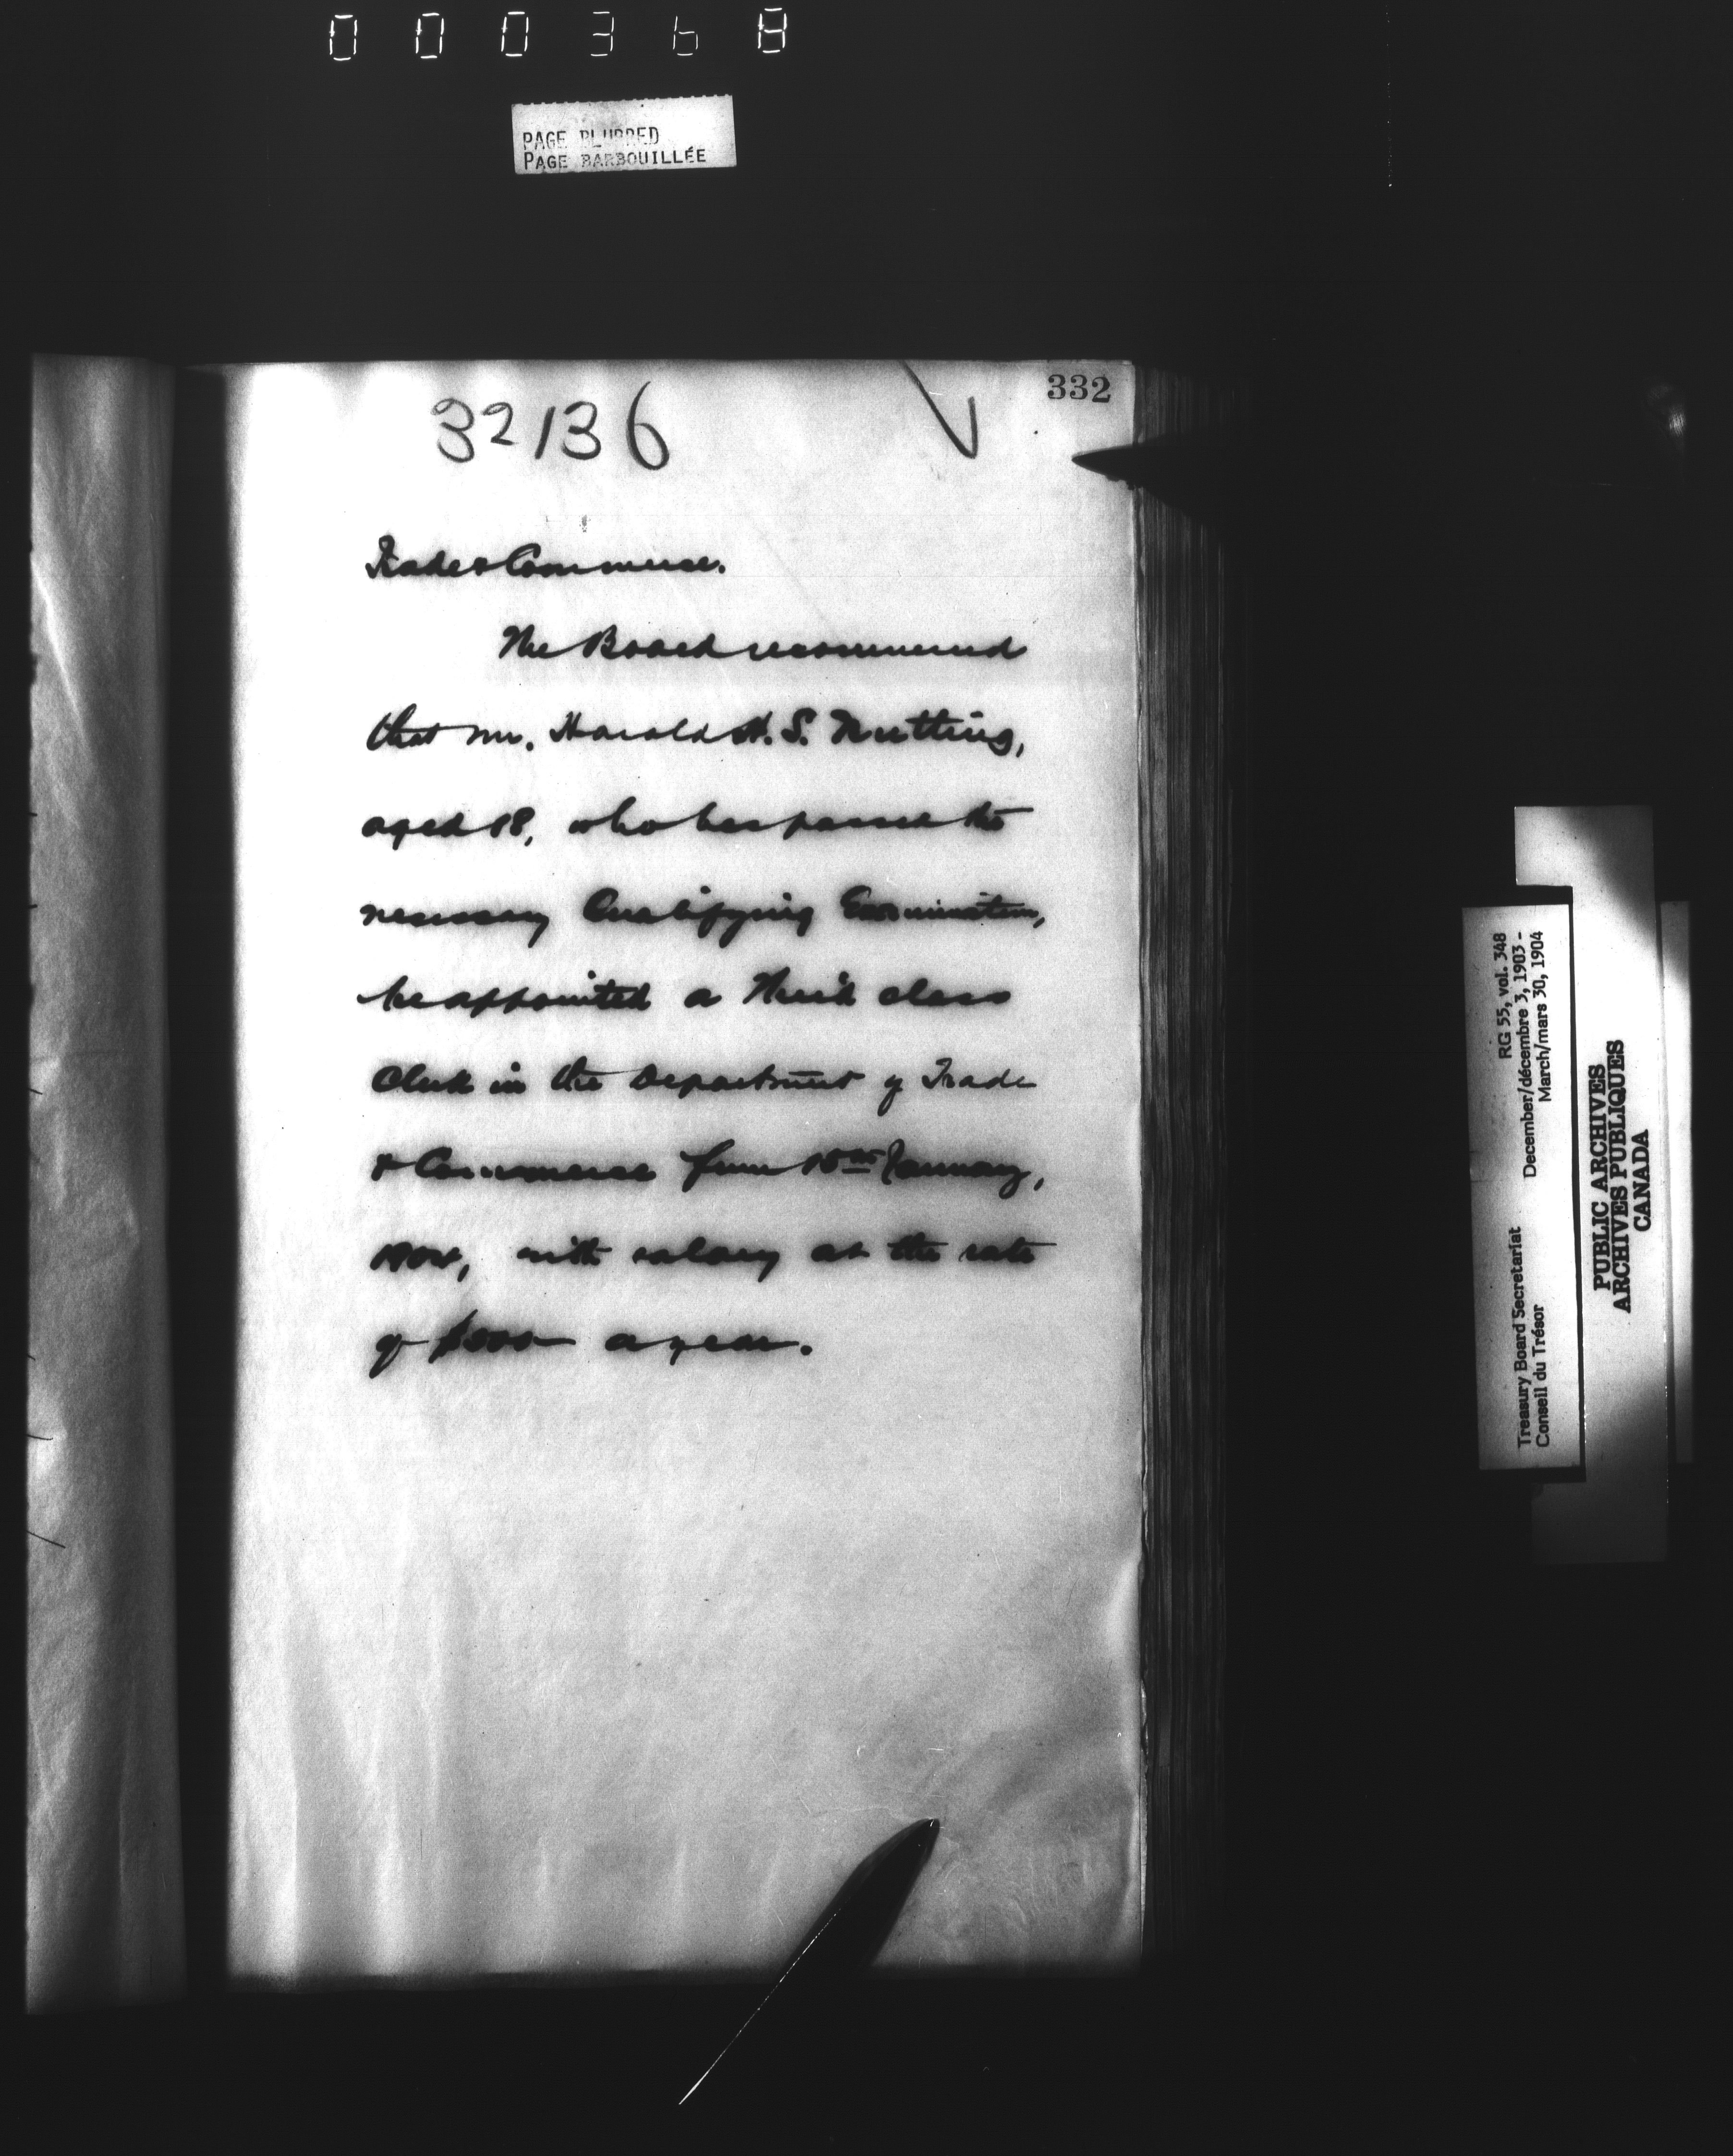 000368
PAGE BLURRED
PAGE BARBOUILLÉE
332
32136
Trade & Commerce.
The Board recommend
that Mr. Harold H. S. Nutting,
aged 18, who has passed the
necessary Qualifying Examination,
be appointed a Third class
Clerk in the Department of Trade
& Commerce from January,
with salary at the rate
of a year.
RG 55, vol. 348
December/décembre 3, 1903 -
March/mars 30, 1904
Treasury Board Secretariat
Conseil du Trésor
PUBLIC ARCHIVES
ARCHIVES PUBLIQUES
CANADA